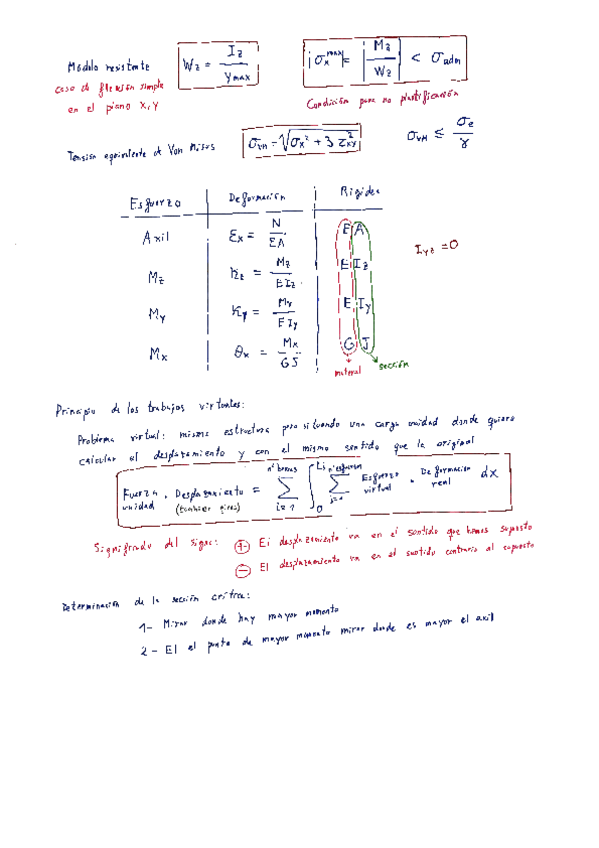 Módulo resistente
caso de flexión simple
en el plano x, y
Wz = Iz / ymax
|σx^max| = |Mz / Wz| < σadm
Condición para no plastificación
Tensión equivalente de Von Mises
σVM = √(σx² + 3 τxy²)
σVM ≤ σe / γ
Esfuerzo Deformación Rigidez
Axil εx = N / EA E A
Mz Kz = Mz / EIz E Iz
My Ky = My / EIy E Iy
Mx θx = Mx / GJ G J
Iyz = 0
material sección
Principio de los trabajos virtuales:
Problema virtual: misma estructura pero situando una carga unidad donde quiero
calcular el desplazamiento y con el mismo sentido que la original
Fuerza unidad · Desplazamiento (también giros) = Σ i=1 nº barras ∫ 0 Li Σ j=1 nºesfuerzos Esfuerzo virtual · Deformación real dx
Significado del signo: + El desplazamiento va en el sentido que hemos supuesto
− El desplazamiento va en el sentido contrario al supuesto
Determinación de la sección crítica:
1- Mirar donde hay mayor momento
2- El el punto de mayor momento mirar donde es mayor el axil